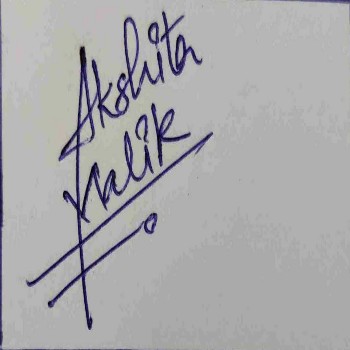 Akshita
Malik